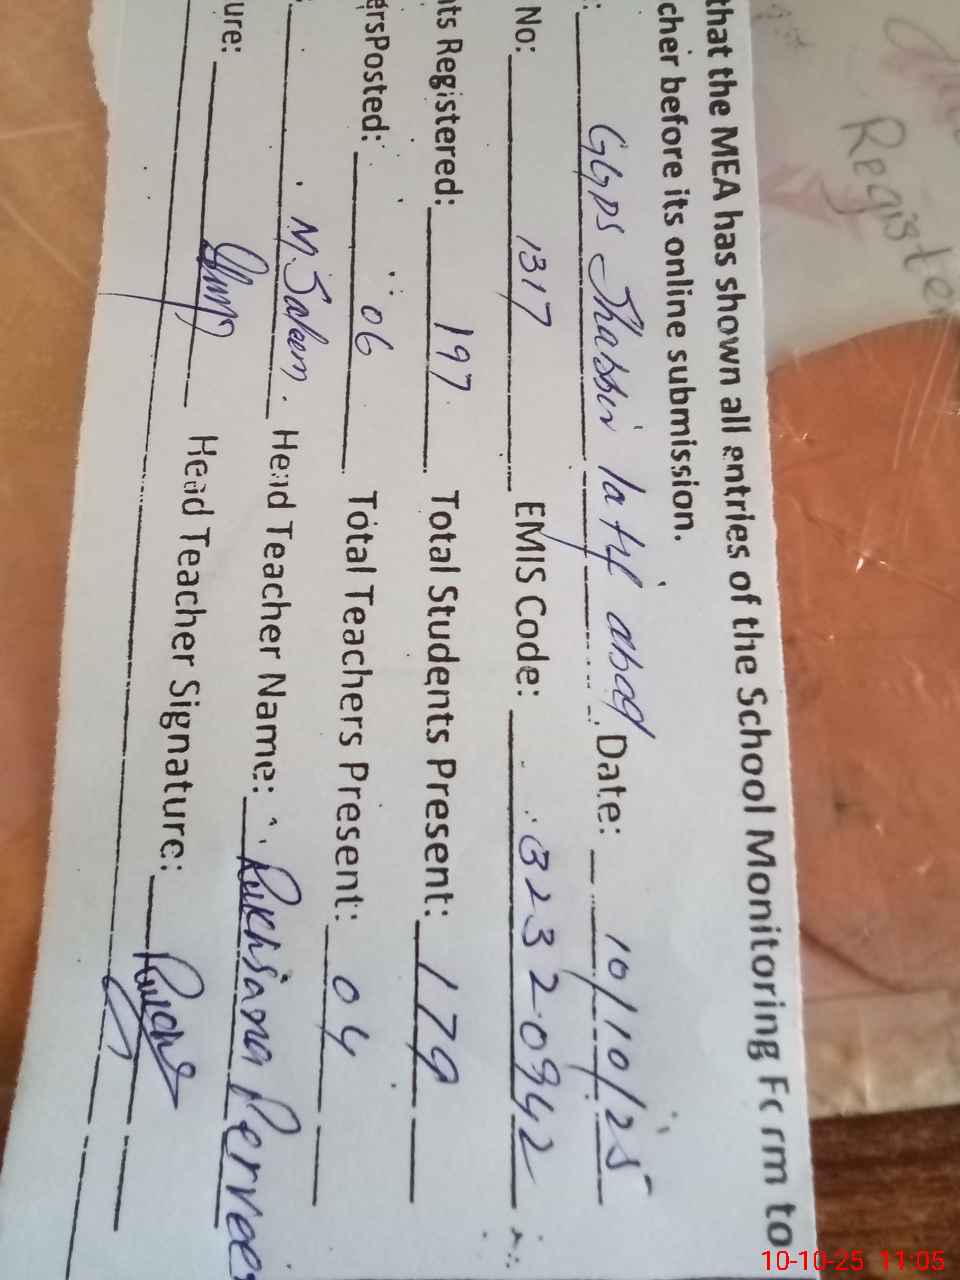 that the MEA has shown all entries of the School Monitoring Form to
cher before its online submission.
: GGPS Shabbir latif abad Date: 10/10/25
No: 1317 EMIS Code: 32320942
nts Registered: 197 Total Students Present: 179
ersPosted: 06 Total Teachers Present: 04
: M. Saleem. Head Teacher Name: Rukhsana Pervee
ure: Head Teacher Signature:
Register
10-10-25 11:05